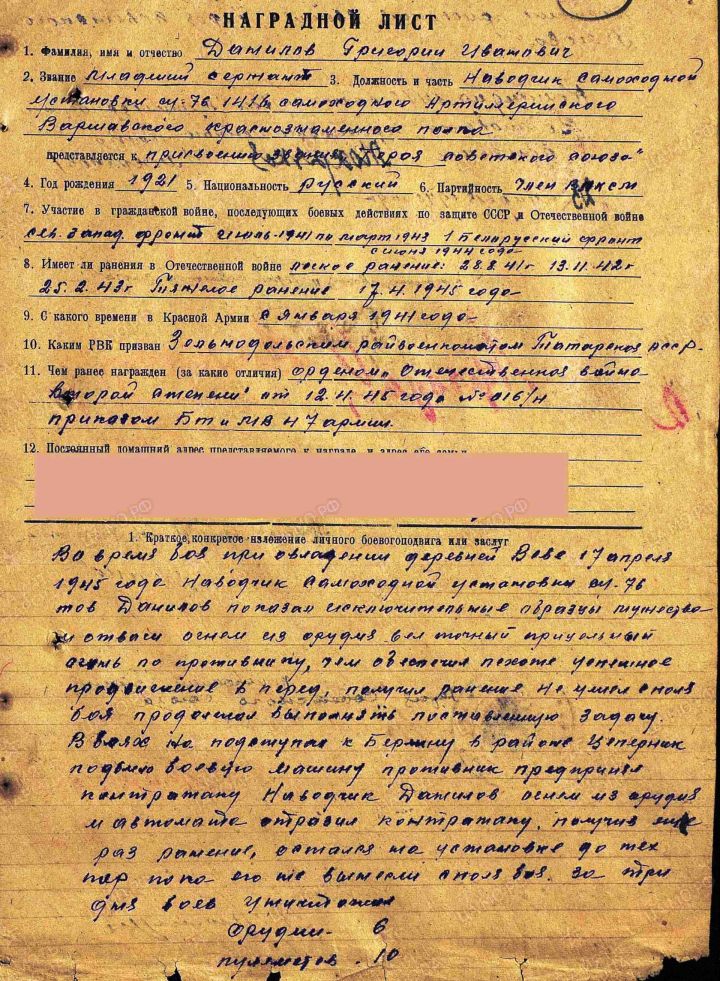 НАГРАДНОЙ ЛИСТ
1. Фамилия, имя и отчество Данилов Григорий Иванович
2. Звание Младший сержант 3. Должность и часть Наводчик Самоходной
Установки СУ-76 1416 самоходного Артиллерийского
Варшавского краснознаменного полка
представляется к присвоению звания "Героя Советского Союза"
4. Год рождения 1921 5. Национальность русский 6. Партийность член ВЛКСМ
7. Участие в гражданской войне, последующих боевых действиях по защите СССР и Отечественной войне
Сев. Запад. фронт с июль 1941 по март 1943 1 Белорусский фронт
с июня 1944 года
8. Имеет ли ранения в Отечественной войне легкое ранение: 28.8.41г 13.11.42г
25.2.43г Тяжелое ранение 17.4.1945 года
9. С какого времени в Красной Армии с января 1941 года
10. Каким РВК призван Зельнодольским райвоенкоматом Татарской АССР
11. Чем ранее награжден (за какие отличия) орденом "Отечественной войны
второй степени" от 12.4.45 года № 016/н
приказом БТ и МВ 47 армии.
12. Постоянный домашний адрес представляемого к награде и адрес его семьи
1. Краткое, конкретное изложение личного боевого подвига или заслуг
Во время боя при овладении деревней Веве 17 апреля
1945 года Наводчик Самоходной установки СУ-76
тов Данилов показал исключительные образцы мужества
и отваги огнем из орудия вел точный прицельный
огонь по противнику, чем обеспечил пехоте успешное
продвижение в перед, получил ранение не ушел с поля
боя продолжал выполнять поставленную задачу.
В боях на подступах к Берлину в районе Цеперник
подбило боевую машину противник предпринял
контратаку Наводчик Данилов огнем из орудия
и автомата отразил контратаку, получив еще
раз ранение, остался на установке до тех
пор пока его не вынесли с поля боя. За три
дня боев уничтожил
орудий - 6
пулеметов - 10